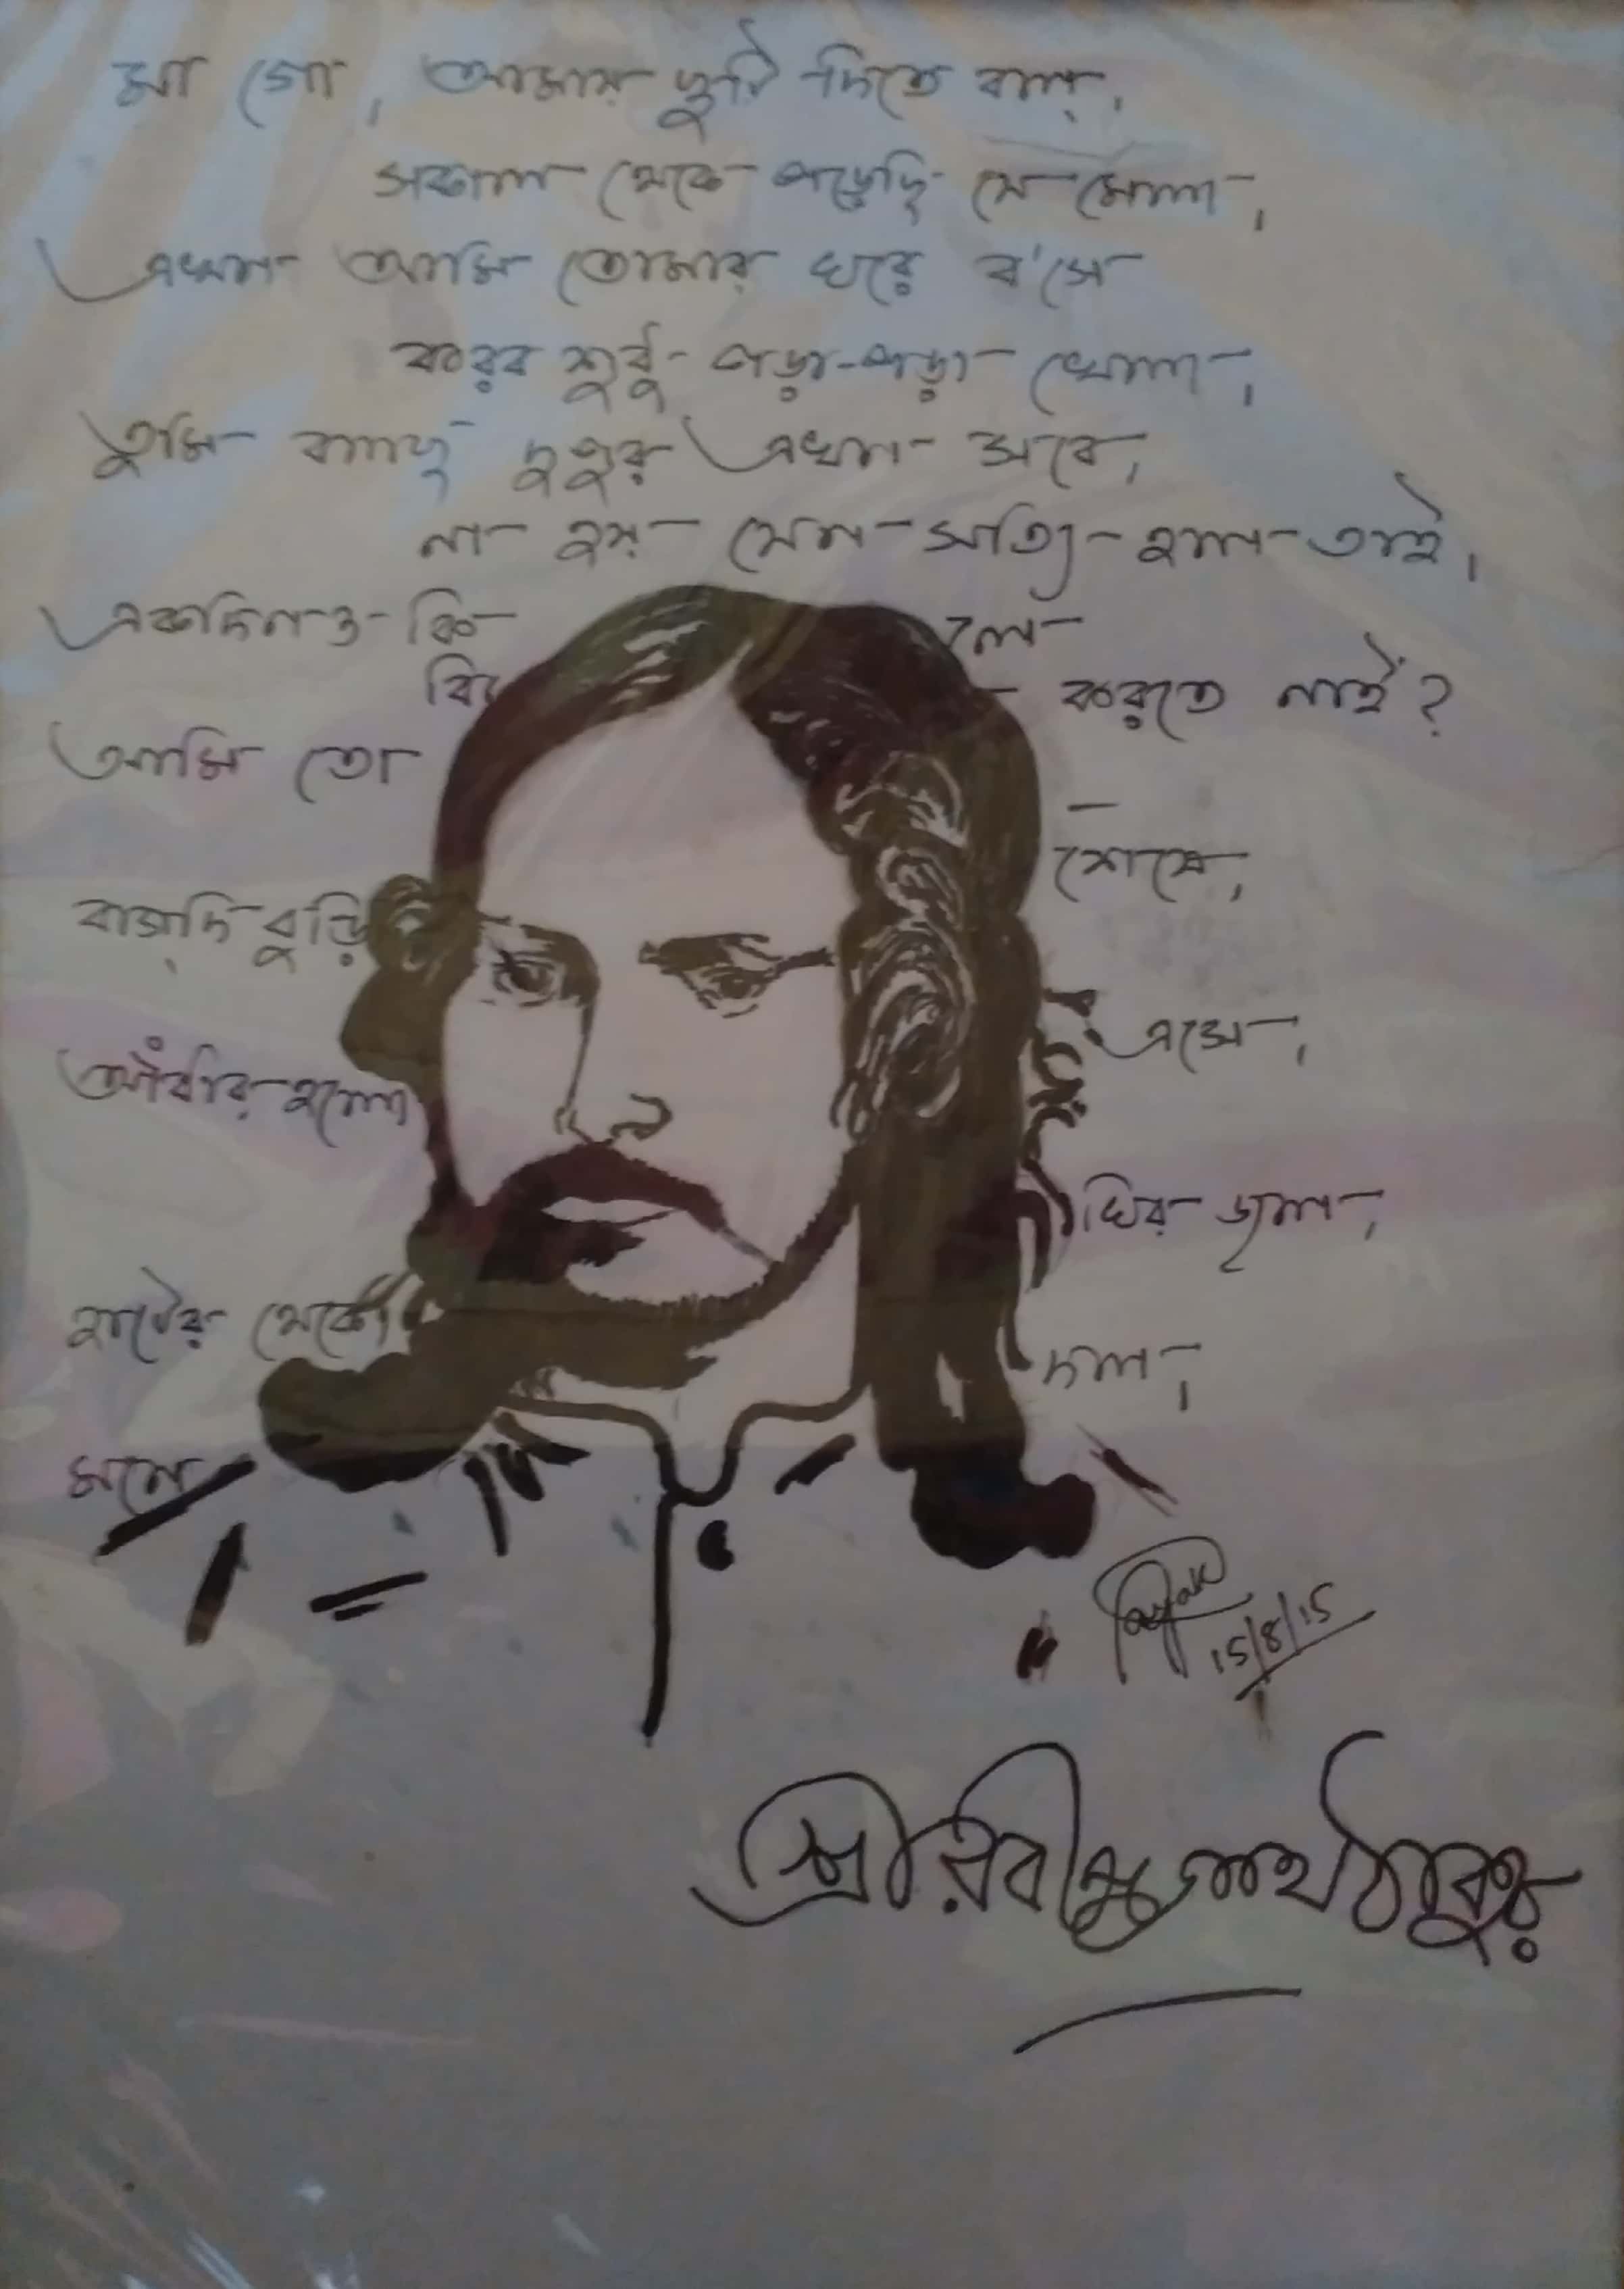 মা গো, আমায় ছুটি দিতে বল্,
সকাল থেকে পড়েছি যে মেলা,
এখন আমি তোমার ঘরে ব'সে
করব শুধু পড়া-পড়া খেলা,
তুমি বলছ দুপুর এখন সবে,
না হয় যেন সত্যি হল তাই,
একদিনও কি লে
বি করতে নাই?
আমি তো
শেষে,
বাগ্‌দি বুড়ি
এসে,
আঁধার হলো
ঘির জল,
হাটের থেকে
দল,
মনে
15/8/15
শ্রীরবীন্দ্রনাথ ঠাকুর